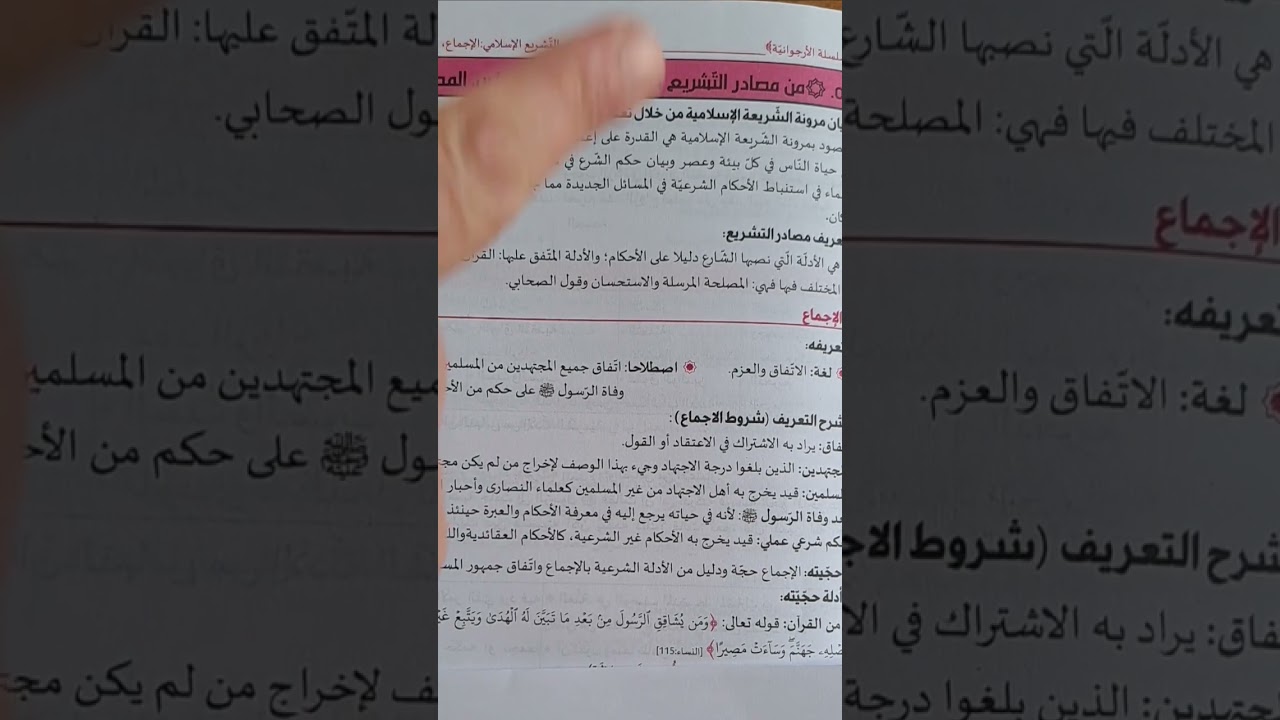 لسلة الأرجوانيّة﴾ التّشريع الإسلامي:الإجماع،
من مصادر التّشريع
مرونة الشّريعة الإسلامية من خلال
بمرونة الشّريعة الإسلامية هي القدرة على
حياة النّاس في كلّ بيئة وعصر وبيان حكم الشّرع في
في استنباط الأحكام الشرعيّة في المسائل الجديدة مما
عريف مصادر التشريع:
هي الأدلّة الّتي نصبها الشّارع دليلا على الأحكام؛ والأدلة المتّفق عليها: القرآن
المختلف فيها فهي: المصلحة المرسلة والاستحسان وقول الصحابي.
الإجماع
عريفه:
لغة: الاتّفاق والعزم.
اصطلاحا: اتّفاق جميع المجتهدين من المسلمين
وفاة الرّسول ﷺ على حكم من الأح
شرح التعريف (شروط الاجماع):
فاق: يراد به الاشتراك في الاعتقاد أو القول.
جتهدين: الذين بلغوا درجة الاجتهاد وجيء بهذا الوصف لإخراج من لم يكن مجت
سلمين: قيد يخرج به أهل الاجتهاد من غير المسلمين كعلماء النصارى وأحبار
عد وفاة الرّسول ﷺ: لأنه في حياته يرجع إليه في معرفة الأحكام والعبرة حينئذ
كم شرعي عملي: قيد يخرج به الأحكام غير الشرعية، كالأحكام العقائديةوالل
حجّيته: الإجماع حجّة ودليل من الأدلة الشرعية بالإجماع واتّفاق جمهور المس
أدلة حجّيّته:
من القرآن: قوله تعالى: ﴿وَمَن يُشَاقِقِ ٱلرَّسُولَ مِنۢ بَعْدِ مَا تَبَيَّنَ لَهُ ٱلْهُدَىٰ وَيَتَّبِعْ غَيْ
صْلِهِۦ جَهَنَّمَ وَسَآءَتْ مَصِيرًا﴾ [النساء:115]